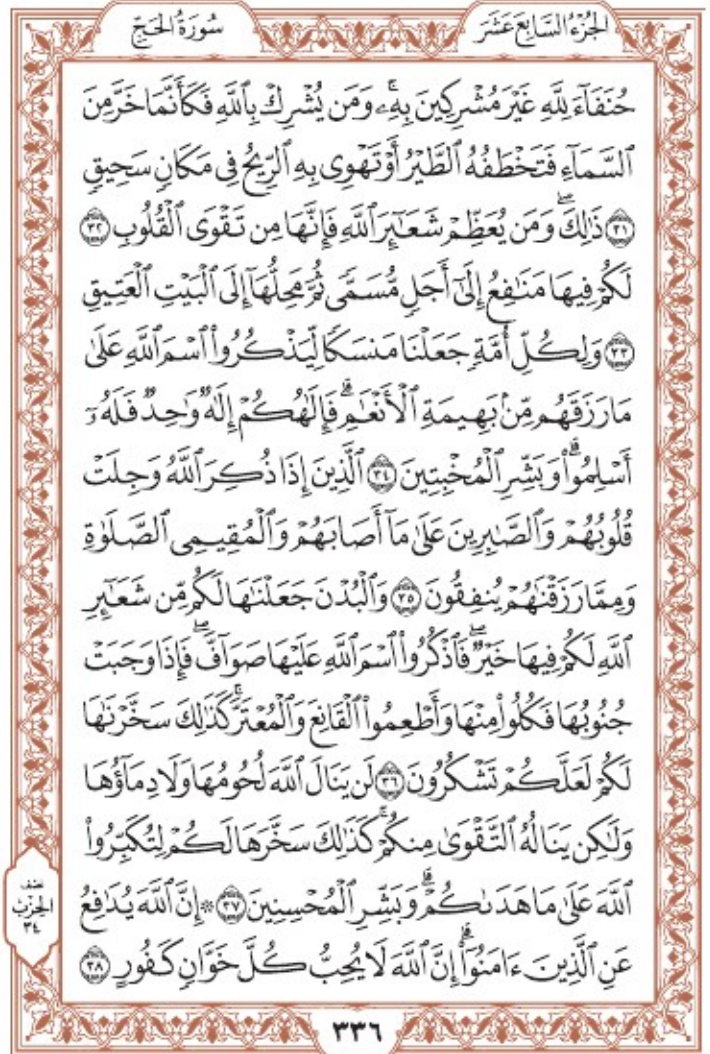 سُورَةُ الحَجّ
الجُزْءُ السَّابِعَ عَشَرَ
حُنَفَآءَ لِلَّهِ غَيْرَ مُشْرِكِينَ بِهِۦۚ وَمَن يُشْرِكْ بِٱللَّهِ فَكَأَنَّمَا خَرَّ مِنَ
ٱلسَّمَآءِ فَتَخْطَفُهُ ٱلطَّيْرُ أَوْ تَهْوِى بِهِ ٱلرِّيحُ فِى مَكَانٍ سَحِيقٍ
٣١ ذَٰلِكَۖ وَمَن يُعَظِّمْ شَعَٰٓئِرَ ٱللَّهِ فَإِنَّهَا مِن تَقْوَى ٱلْقُلُوبِ ٣٢
لَكُمْ فِيهَا مَنَٰفِعُ إِلَىٰٓ أَجَلٍ مُّسَمًّى ثُمَّ مَحِلُّهَآ إِلَى ٱلْبَيْتِ ٱلْعَتِيقِ
٣٣ وَلِكُلِّ أُمَّةٍ جَعَلْنَا مَنسَكًا لِّيَذْكُرُوا۟ ٱسْمَ ٱللَّهِ عَلَىٰ
مَا رَزَقَهُم مِّنۢ بَهِيمَةِ ٱلْأَنْعَٰمِۗ فَإِلَٰهُكُمْ إِلَٰهٌ وَٰحِدٌ فَلَهُۥٓ
أَسْلِمُوا۟ۗ وَبَشِّرِ ٱلْمُخْبِتِينَ ٣٤ ٱلَّذِينَ إِذَا ذُكِرَ ٱللَّهُ وَجِلَتْ
قُلُوبُهُمْ وَٱلصَّٰبِرِينَ عَلَىٰ مَآ أَصَابَهُمْ وَٱلْمُقِيمِى ٱلصَّلَوٰةِ
وَمِمَّا رَزَقْنَٰهُمْ يُنفِقُونَ ٣٥ وَٱلْبُدْنَ جَعَلْنَٰهَا لَكُم مِّن شَعَٰٓئِرِ
ٱللَّهِ لَكُمْ فِيهَا خَيْرٌۖ فَٱذْكُرُوا۟ ٱسْمَ ٱللَّهِ عَلَيْهَا صَوَآفَّۖ فَإِذَا وَجَبَتْ
جُنُوبُهَا فَكُلُوا۟ مِنْهَا وَأَطْعِمُوا۟ ٱلْقَانِعَ وَٱلْمُعْتَرَّۚ كَذَٰلِكَ سَخَّرْنَٰهَا
لَكُمْ لَعَلَّكُمْ تَشْكُرُونَ ٣٦ لَن يَنَالَ ٱللَّهَ لُحُومُهَا وَلَا دِمَآؤُهَا
وَلَٰكِن يَنَالُهُ ٱلتَّقْوَىٰ مِنكُمْۚ كَذَٰلِكَ سَخَّرَهَا لَكُمْ لِتُكَبِّرُوا۟
ٱللَّهَ عَلَىٰ مَا هَدَىٰكُمْۗ وَبَشِّرِ ٱلْمُحْسِنِينَ ٣٧ ۞ إِنَّ ٱللَّهَ يُدَٰفِعُ
عَنِ ٱلَّذِينَ ءَامَنُوٓا۟ۗ إِنَّ ٱللَّهَ لَا يُحِبُّ كُلَّ خَوَّانٍ كَفُورٍ ٣٨
نصف
الحِزْب
٣٤
٣٣٦